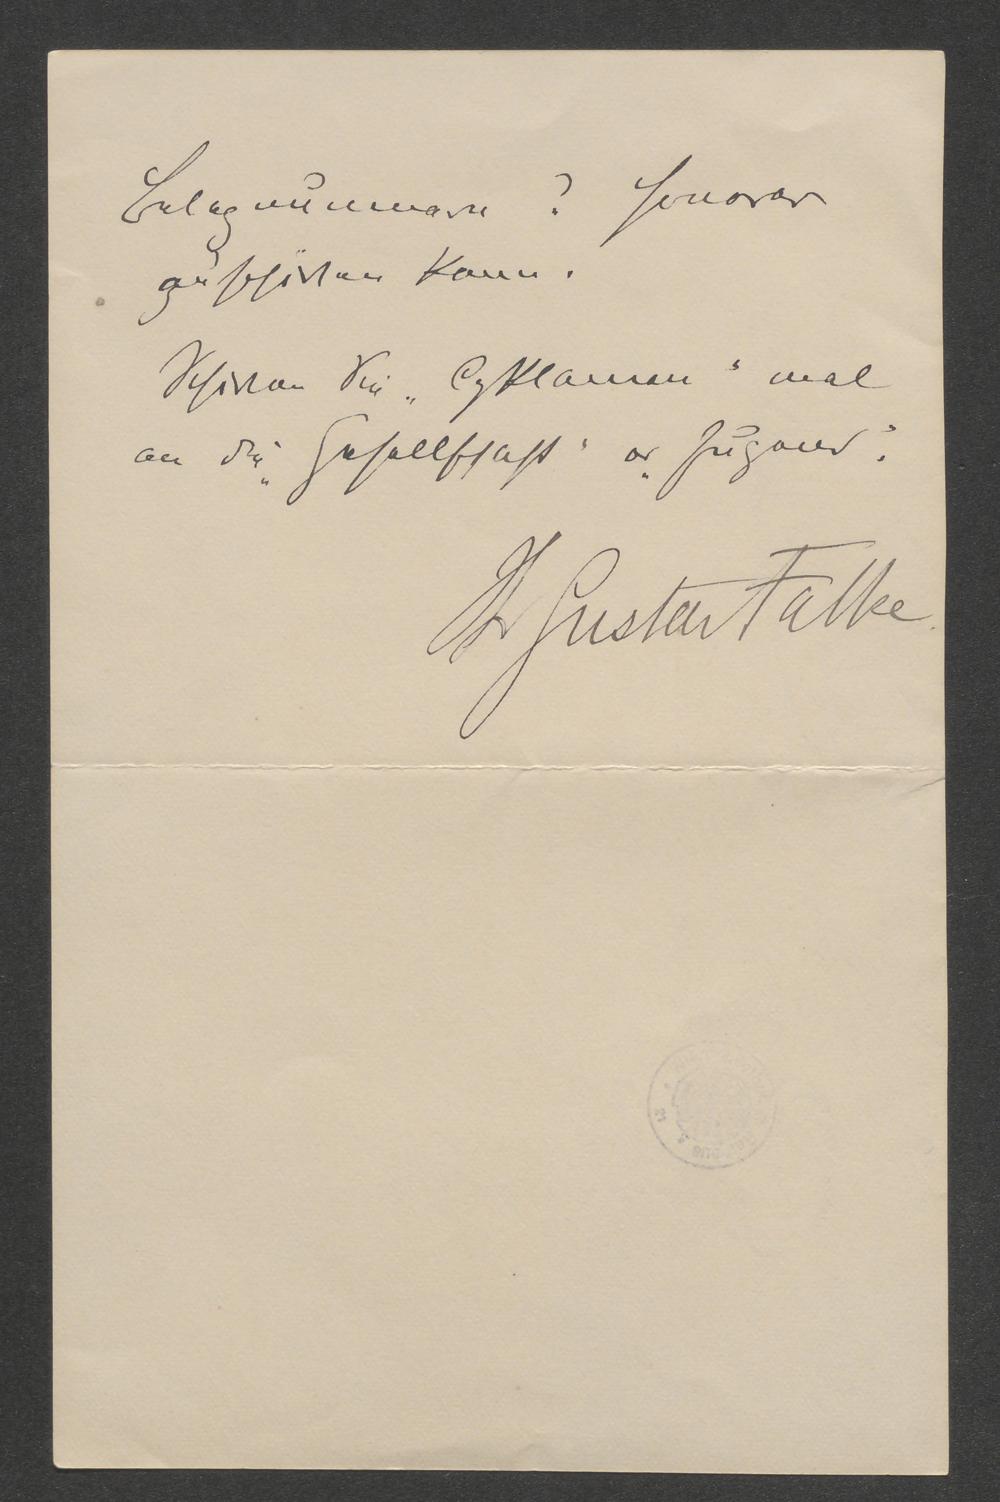 Belegnummern? Honorar
zuschicken kann.
Schicken Sie „Cyklamen“ mal
an die „Gesellschaft“ od „Jugend“.
Ihr Gustav Falke.